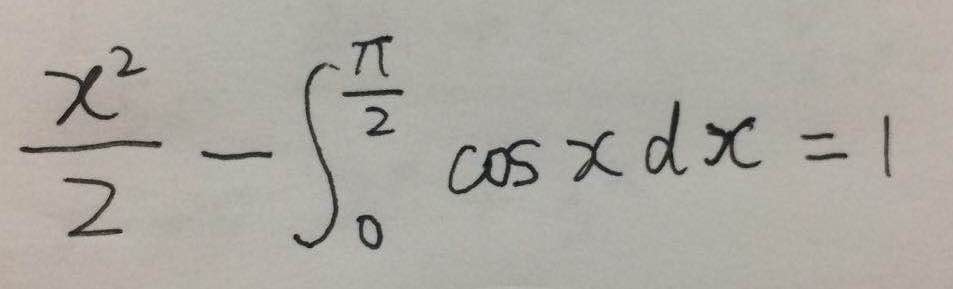 \frac{x^2}{2} - \int_0^{\frac{\pi}{2}} \cos x \, dx = 1